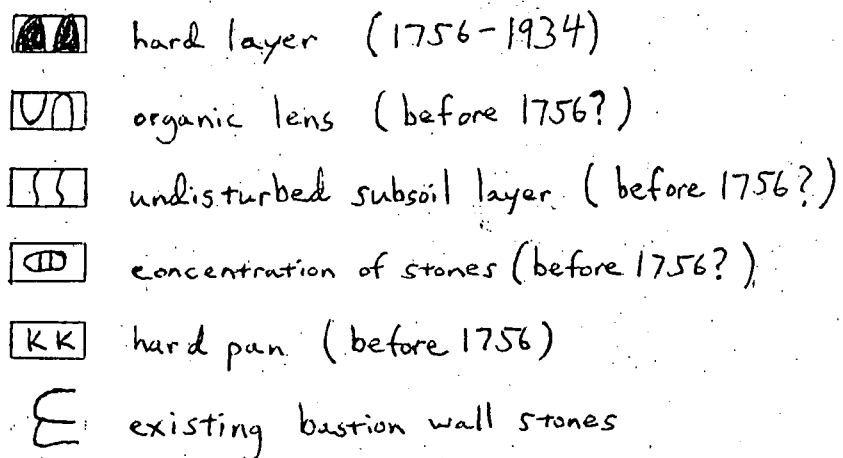 hard layer (1756-1934)
organic lens (before 1756?)
undisturbed subsoil layer (before 1756?)
concentration of stones (before 1756?)
KK hard pan (before 1756)
existing bastion wall stones